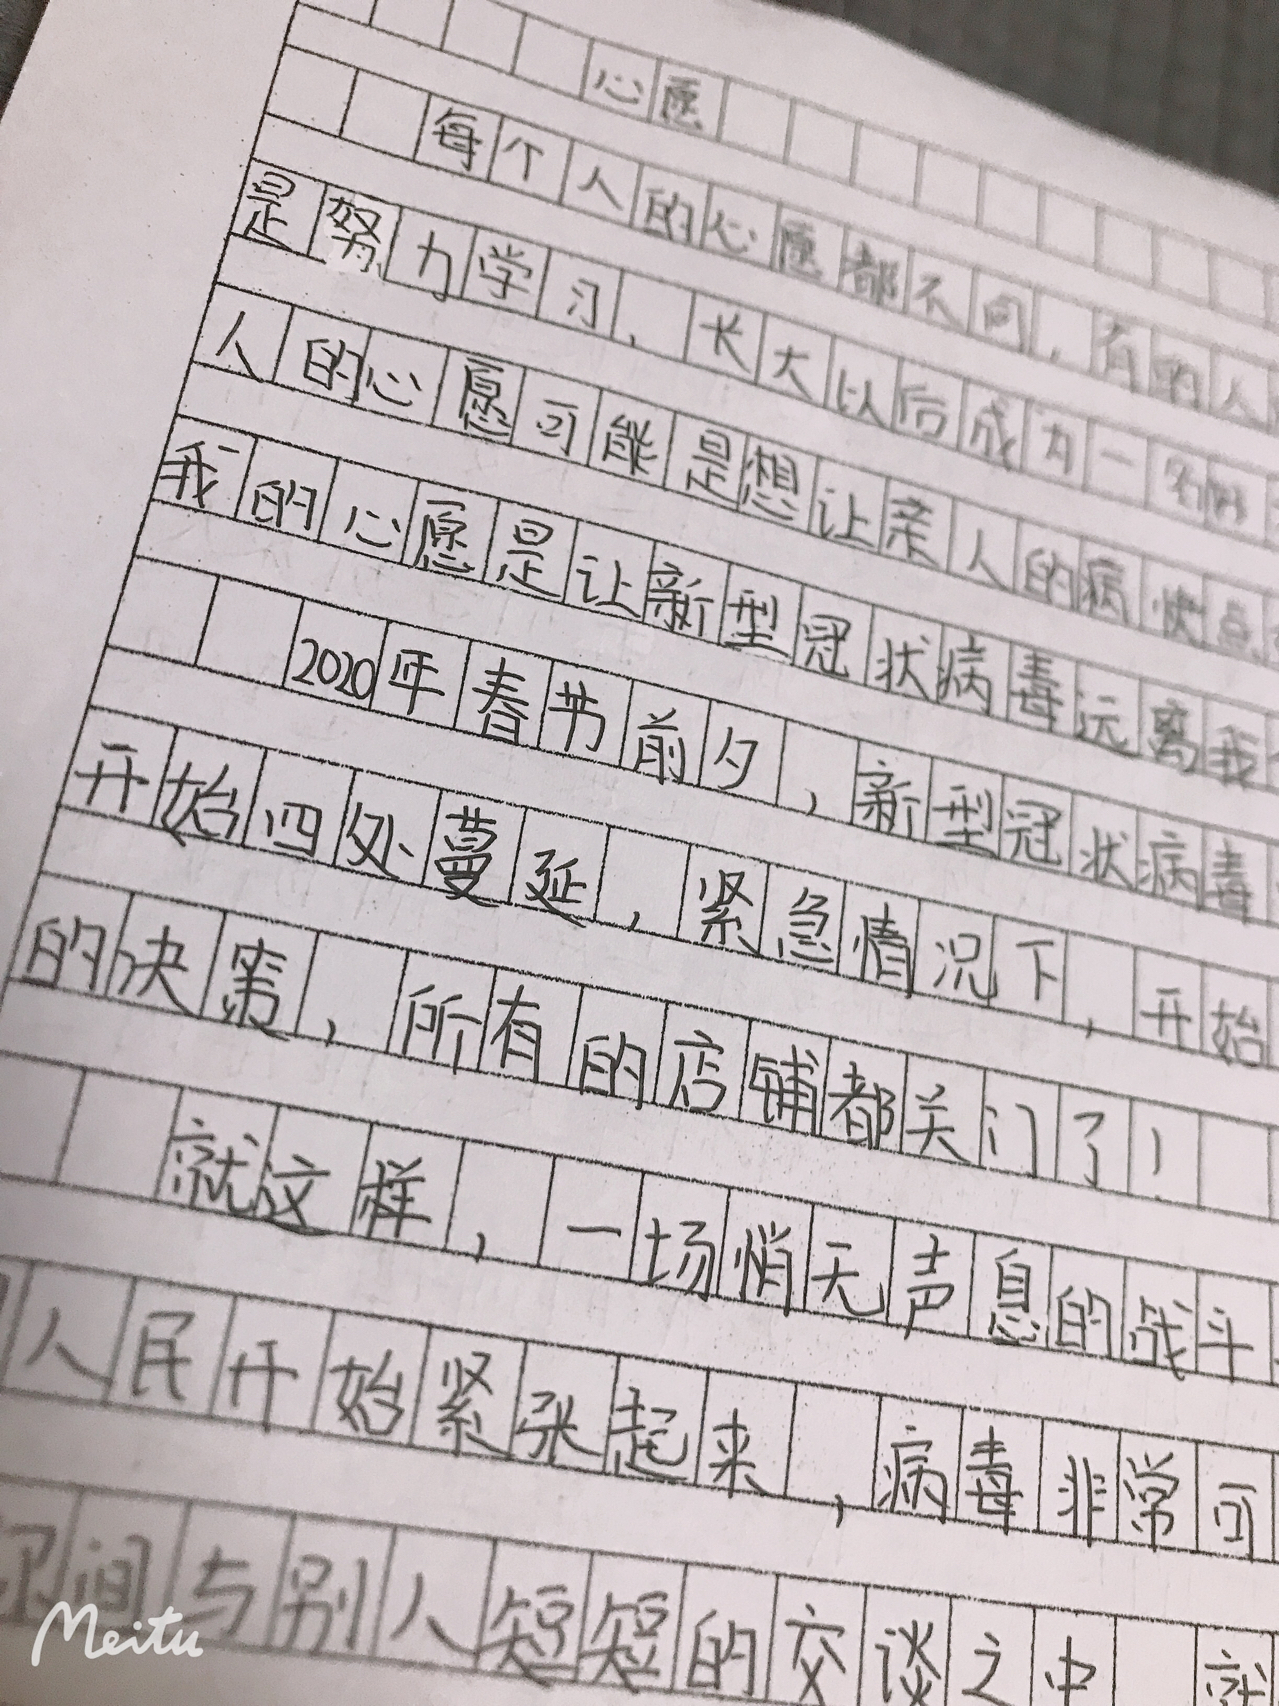 心愿
每个人的心愿都不同，有的人
是努力学习，长大以后成为一名
人的心愿可能是想让亲人的病快点
我的心愿是让新型冠状病毒远离我
2020年春节前夕，新型冠状病毒
开始四处蔓延，紧急情况下，开始
的决策，所有的店铺都关门了！
就这样，一场悄无声息的战斗
人民开始紧张起来，病毒非常可
间与别人短短的交谈之中 就
Meitu